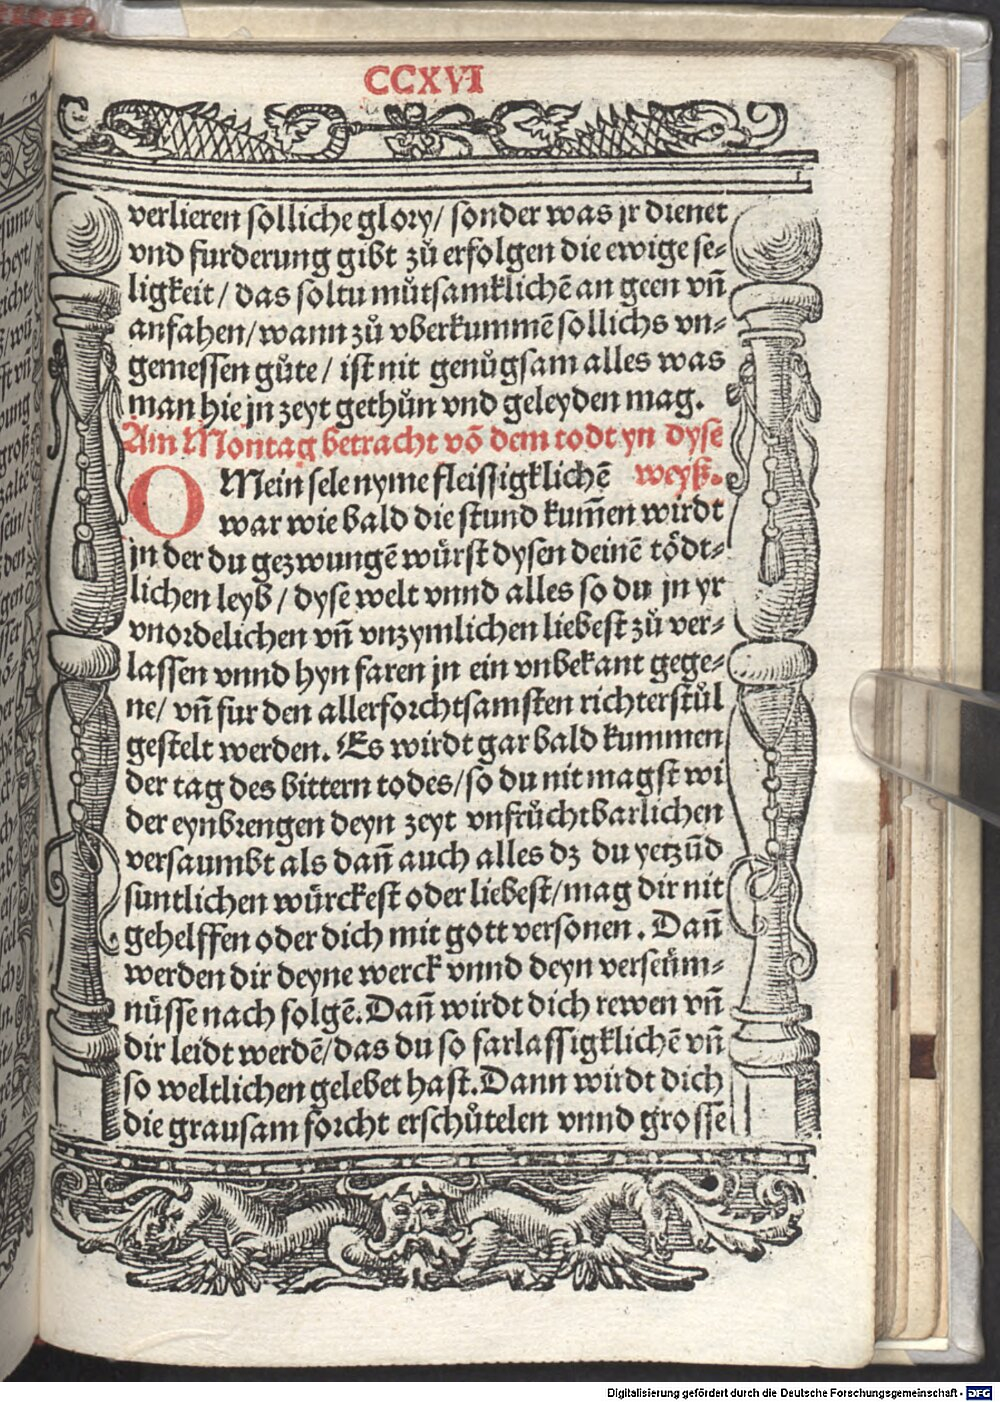 CCXVI
verlieren solliche glory/ sonder was jr dienet
vnd furderung gibt zů erfolgen die ewige se⸗
ligkeit/ das soltu můtsamklichē an geen vñ
anfahen/ wann zů vberkummē sollichs vn⸗
gemessen gůte/ ist nit genůgsam alles was
man hie jn zeyt gethůn vnd geleyden mag.
Am Montag betracht vō dem todt yn dysē
weyß.
O Mein sele nyme fleissigklichē
war wie bald die stund kum̄en wirdt
jn der du gezwungē wůrst dysen deinē tödt⸗
lichen leyb/ dyse welt vnnd alles so du jn yr
vnordelichen vñ vnzymlichen liebest zů ver⸗
lassen vnnd hyn faren jn ein vnbekant gege⸗
ne/ vñ fur den allerforchtsamsten richterstůl
gestelt werden. Es wirdt gar bald kummen
der tag des bittern todes/ so du nit magst wi
der eynbrengen deyn zeyt vnfrůchtbarlichen
versaumbt als dañ auch alles dz du yetzūd
suntlichen würckest oder liebest/ mag dir nit
gehelffen oder dich mit gott versonen. Dañ
werden dir deyne werck vnnd deyn verseüm⸗
nüsse nach folgē. Dañ wirdt dich rewen vñ
dir leidt werdē/ das du so farlassigklichē vñ
so weltlichen gelebet hast. Dann wirdt dich
die grausam forcht erschůtelen vnnd grosse
Digitalisierung gefördert durch die Deutsche Forschungsgemeinschaft - DFG